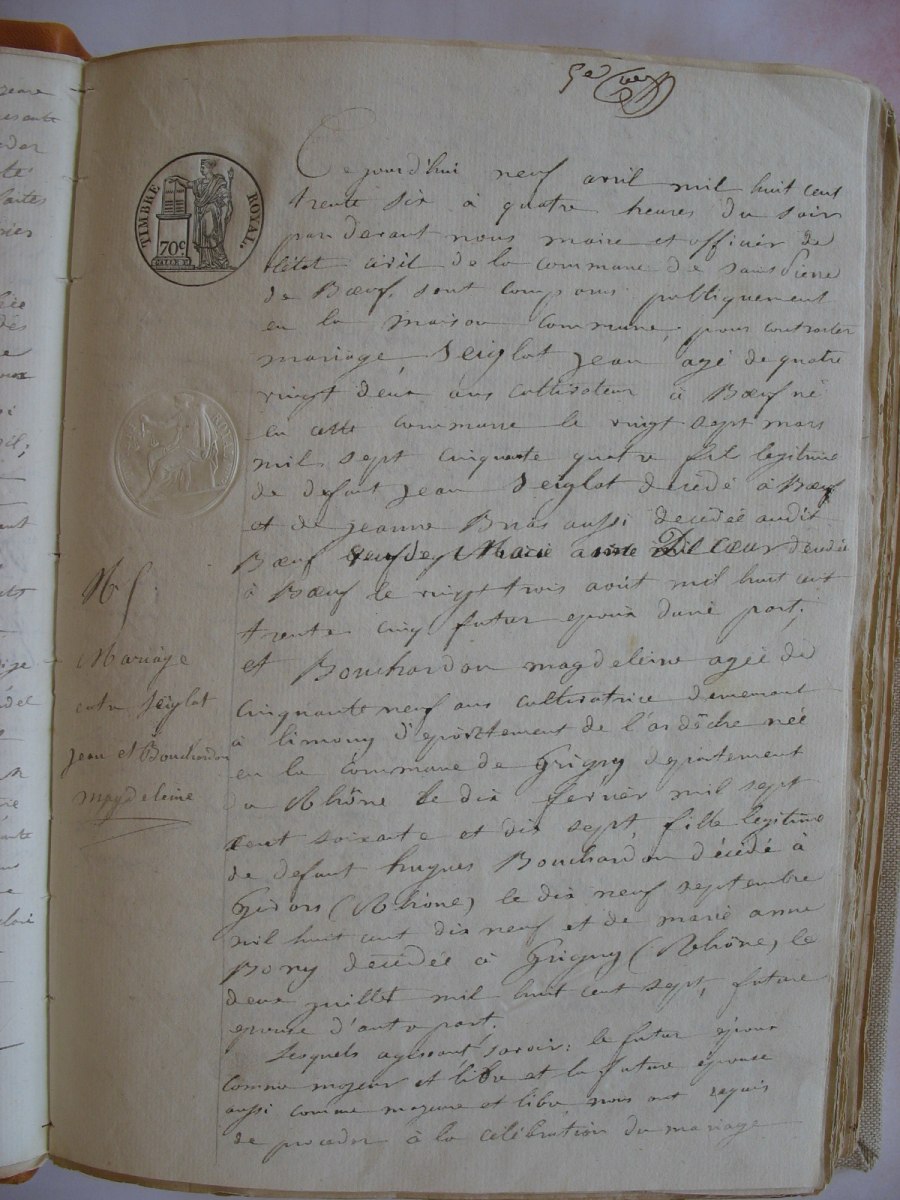 5e
TIMBRE ROYAL
70c
Ce jourd'hui neuf avril mil huit cent
trente six à quatre heures du soir
par devant nous maire et officier de
l'état civil de la commune de Saint Pierre
de Bœuf, sont comparus publiquement
en la maison commune, pour contracter
mariage Seiglat Jean agé de quatre
vingt deux ans cultivateur à Bœuf né
en cette commune le vingt sept mars
mil sept cinquante quatre fil legitime
de defunt Jean Seiglat decedé à Bœuf
et de jeanne Brias aussi decedée audit
Bœuf veuf de Marie decedée
à Bœuf le vingt trois août mil huit cent
trente cinq futur epoux d'une part;
et Bouchardon magdeleine agée de
cinquante neuf ans cultivatrice demeurant
à limony departement de l'ardêche née
en la commune de Grigny departement
du Rhône le dix fevrier mil sept
cent soixante et dix sept, fille legitime
de defunt hugues Bouchardon décédé à
Givors (Rhône) le dix neuf septembre
mil huit cent dix neuf et de marie anne
Bony decedée à Grigny (Rhône) le
deux juillet mil huit cent sept, future
epouse d'autre part.
Lesquels agissant, savoir: le futur époux
comme majeur et libre et la future épouse
aussi comme majeure et libre, nous ont requis
de proceder à la célébration du mariage
N
Mariage
entre Seiglat
Jean et Bouchardon
magdeleine